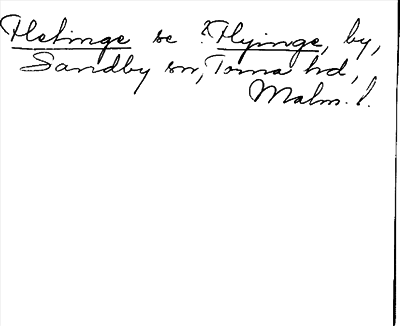 Fletinge se ?Flyinge, by,
Sandby sn, Torna hd,
Malm. l.